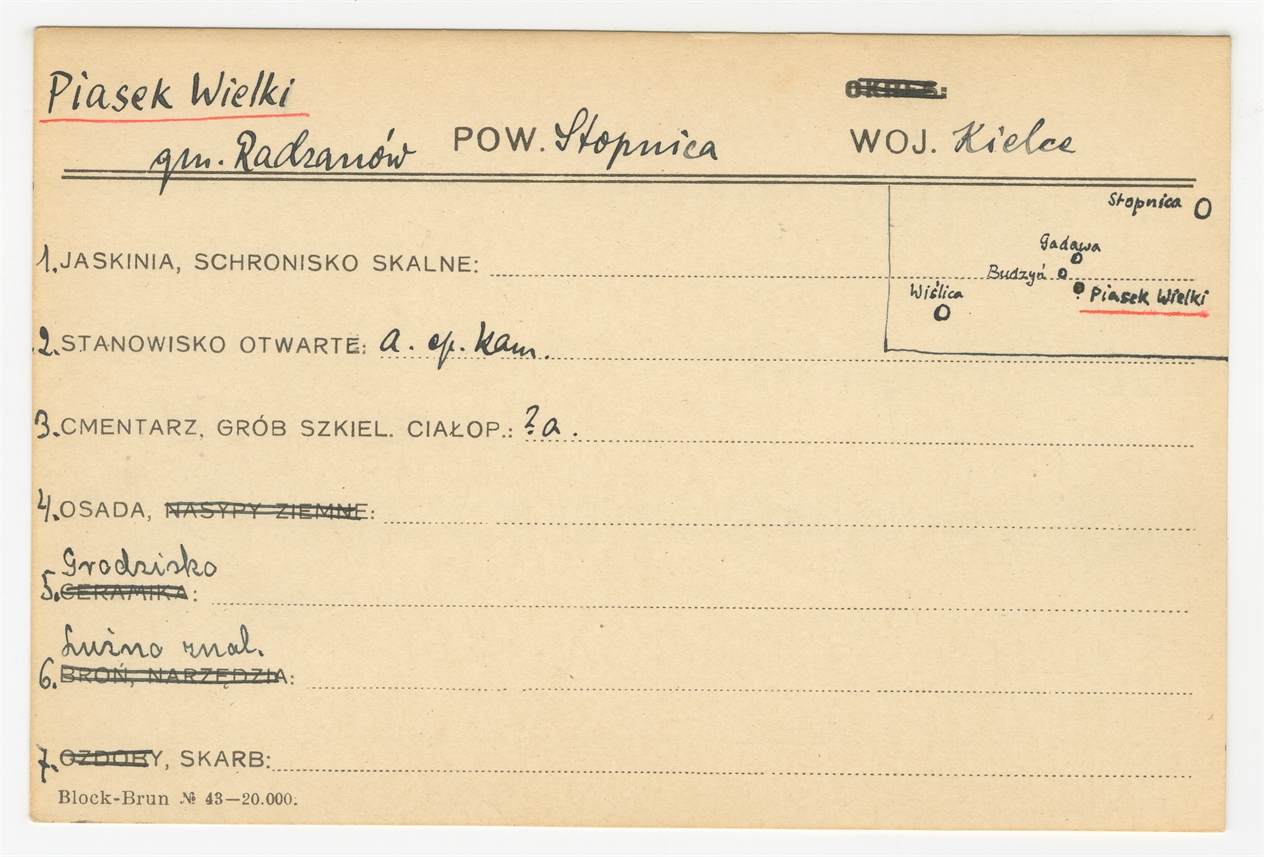 Piasek Wielki
OKRES:
gm. Radzanów POW. Stopnica WOJ. Kielce
Stopnica
Gadawa
Budzyń
Wiślica
Piasek Wielki
1. JASKINIA, SCHRONISKO SKALNE:
2. STANOWISKO OTWARTE: a. ep. kam.
3. CMENTARZ, GRÓB SZKIEL. CIAŁOP.: ? a.
4. OSADA, NASYPY ZIEMNE:
Grodzisko
5. CERAMIKA:
Luźno znal.
6. BROŃ, NARZĘDZIA:
7. OZDOBY, SKARB:
Block-Brun № 43—20.000.